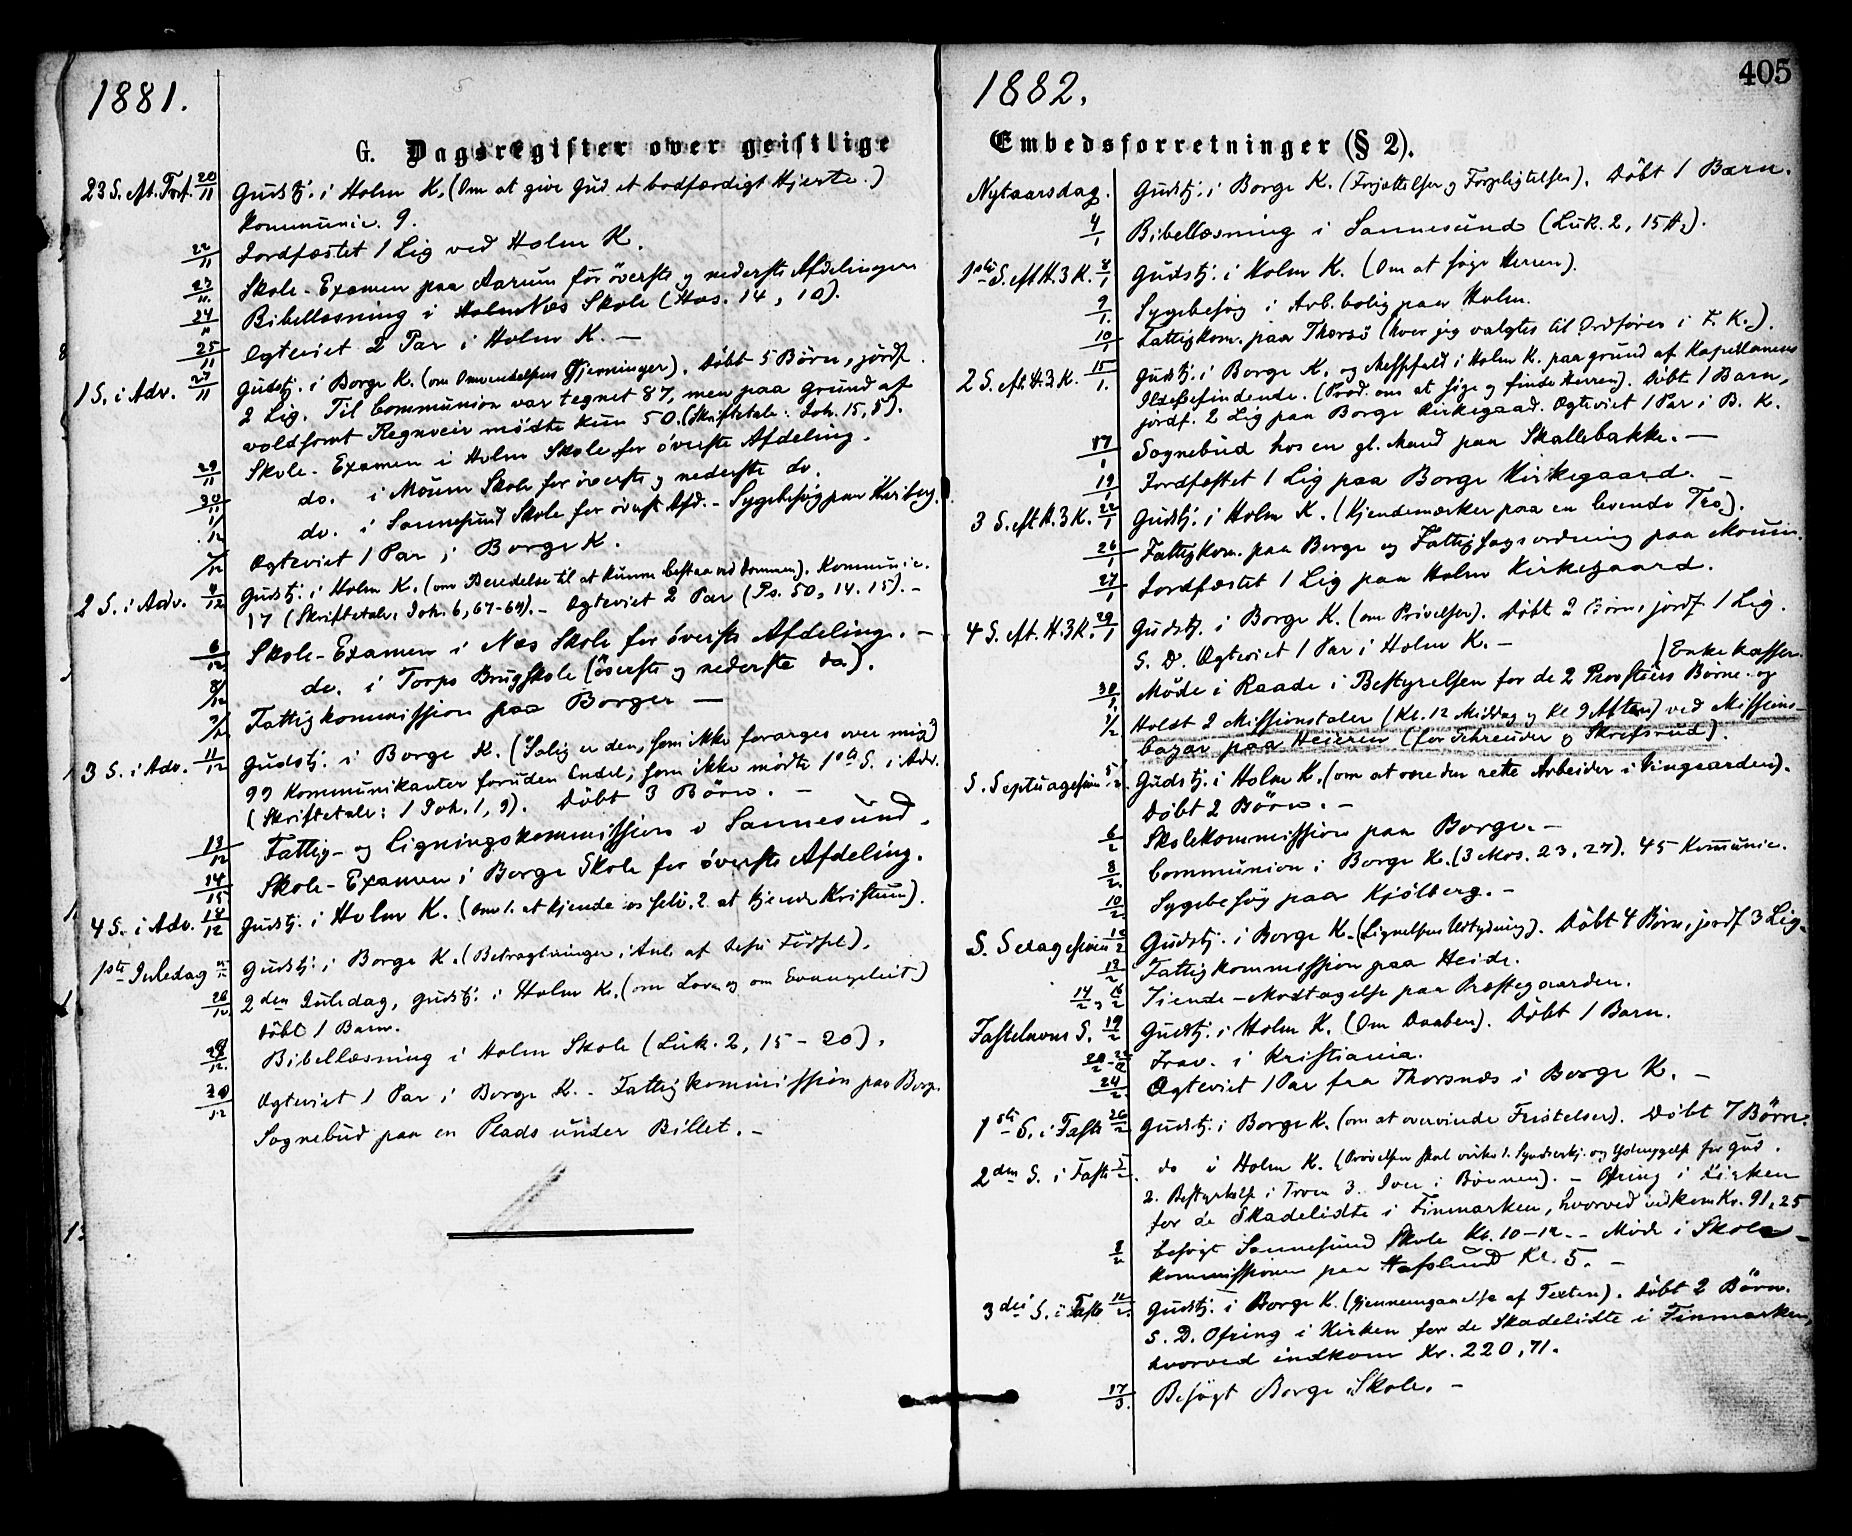 1881.
G. Dagsregister over geistlige
23 S. eft. Tref. 20/11 Gudstj. i Holm K. (Om at give Gud et bodfærdigt Hjerte.)
Kommunic. 9.
22/11 Jordfæstet 1 Lig ved Holm K.
23/11. Skole-Examen paa Aarum for överste og nederste Afdelingen
24/11 Bibellæsning i Næs Skole (Hos. 14, 10).
25/11 Ogteviet 2 Par i Holm K. —
1 S. i Adv. 27/11 Gudstj. i Borge K. (om Omvendelsens Gjerninger). Döbt 5 Börn, jordf.
2 Lig. Til Communion var tegnet 87, men paa Grund af
voldsomt Regnveir mödte kun 50. (Skriftetale: Joh. 15, 5).
29/11 Skole-Examen i Holm Skole for överste Afdeling.
30/11 do. i Moum Skole for överste og nederste do.
1/12 do. i Sannesund Skole for överst Afd. - Sygebesög paa
2/12 Ogteviet 1 Par i Borge K.
2 S. i Adv. 4/12 Gudstj. i Holm K. (om Beredelse til at kunne bestaa ved Dommen). Kommunic.
17 (Skriftetale: Joh. 6, 67-69). - Ogteviet 2 Par (Ps. 50, 14. 15). -
6/12 Skole-Examen i Næs Skole for överste Afdeling. -
8/12 do. i Torps Brugskole (överste og nederste do).
9/12 Fattigkommission paa Borger —
3 S. i Adv. 11/12 Gudstj. i Borge K. (Salig er den, som ikke forarges over mig)
99 Kommunikanter foruden Endel, som ikke mödte 1ste S. i Adv.
(Skriftetale: 1 Joh. 1, 9). Döbt 3 Börn. -
13/12 Fattig- og Ligningskommission i Sannesund.
14/15 Skole-Examen i Borge Skole for överste Afdeling.
4 S. i Adv. 18/12 Gudstj. i Holm K. (Om 1. at kjende os selv. 2. at kjende Kristum).
1ste Juledag Gudstj. i Borge K. (Betragtninger i Anl. af Jesu Födsel).
26/12 2den Juledag, Gudstj. i Holm K. (om Loven og om Evangeliet)
Döbt 1 Barn.
28/12. Bibellæsning i Holm Skole (Luk. 2, 15-20).
30/12 Ogteviet 1 Par i Borge K. - Fattigkommission paa Borge.
Sognebud paa en Plads under Billet. -
1882.
405
Embedsforretninger (§ 2).
Nytaarsdag. Gudstj. i Borge K. (Forjættelser og Forpligtelser). Döbt 1 Barn.
4/1 Bibellæsning i Sannesund (Luk. 2, 15 ff.).
1ste S. eft H. 3 K. 8/1 Gudstj. i Holm K. (Om at söge Herren).
9/1. Sygebesög i Arb. bolig paa Holm.
10/1 Fattigkom. paa Thorsö (hvor jeg valgtes til Ordförer i F. K.).
2 S. eft H. 3 K. 15/1. Gudstj. i Borge K. og Messefald i Holm K. paa Grund af Kapellanens
Ildebefindende. (Præd. om at söge og finde Herren). Döbt 1 Barn,
jordf. 2 Lig paa Borge Kirkegaard. Ogteviet 1 Par i B. K.
17/1 Sognebud hos en gl. Mand paa Skallebakke. —
19/1 Jordfæstet 1 Lig paa Borge Kirkegaard. -
3 S. eft H. 3 K. 22/1 Gudstj. i Holm K. (Kjendemærker paa en levende Tro).
26/1 Fattigkom. paa Borge og Fattigfagsordning paa Moum.
27/1 Jordfæstet 1 Lig paa Holm Kirkegaard.
4 S. eft. H. 3 K. 29/1 Gudstj. i Borge K. (om Prövelser). Döbt 2 Börn, jordf. 1 Lig.
S. D. Ogteviet 1 Par i Holm K. -
30/1. Möde i Raade i Bestyrelsen for de 2 Provstiers Börne- og Enkekasser.
1/2 Holdt 2 Missionstaler (Kl. 12 Middag og Kl. 9 Aften) ved Missions-
bazar paa Heieren (for Schreuder og Skrefsrud).
S. Septuagesima 5/2. Gudstj. i Holm K. (om at være den rette Arbeider i Vingaarden).
Döbt 2 Börn. -
6/2 Skolekommission paa Borge. -
8/2. Communion i Borge K. (3 Mos. 23, 27). 45 Kommunic.
10/2. Sygebesög paa Kjölberg. -
S. Sexagesima 12/2 Gudstj. i Borge K. (Lignelsens Udtydning). Döbt 4 Börn, jordf. 3 Lig.
13/2 Fattigkommission paa Heide.
14/2, 16/2 Tiende-Modtagelse paa Præstegaarden.
Fastelavns S. 19/2 Gudstj. i Holm K. (Om Daaben). Döbt 1 Barn.
20/2-22/2 Frav. i Kristiania.
24/2. Ogteviet 1 Par fra Thorsnæs i Borge K. -
1ste S. i Faste 26/2 Gudstj. i Borge K. (om at overvinde Fristelser). Döbt 7 Börn.
2den S. i Faste do i Holm K. (Prövelsen skal virke 1. Syndserkj. og Ydmygelse for Gud.
2. Bestyrkelse i Troen 3. Iver i Bönnen). - Ofring i Kirken
for de Skadelidte i Finmarken, hvorved indkom Kr. 91,25
Besögt Sannesund Skole Kl. 10-12. - Möde i Skole-
kommissionen paa Hafslund Kl. 5. -
3die S. i Faste Gudstj. i Borge K. (Gjennemgaaelse af Texten). Döbt 2 Börn.
S. D. Ofring i Kirken for de Skadelidte i Finmarken,
hvorved indkom Kr. 220,71.
17/3. Besögt Borge Skole. -